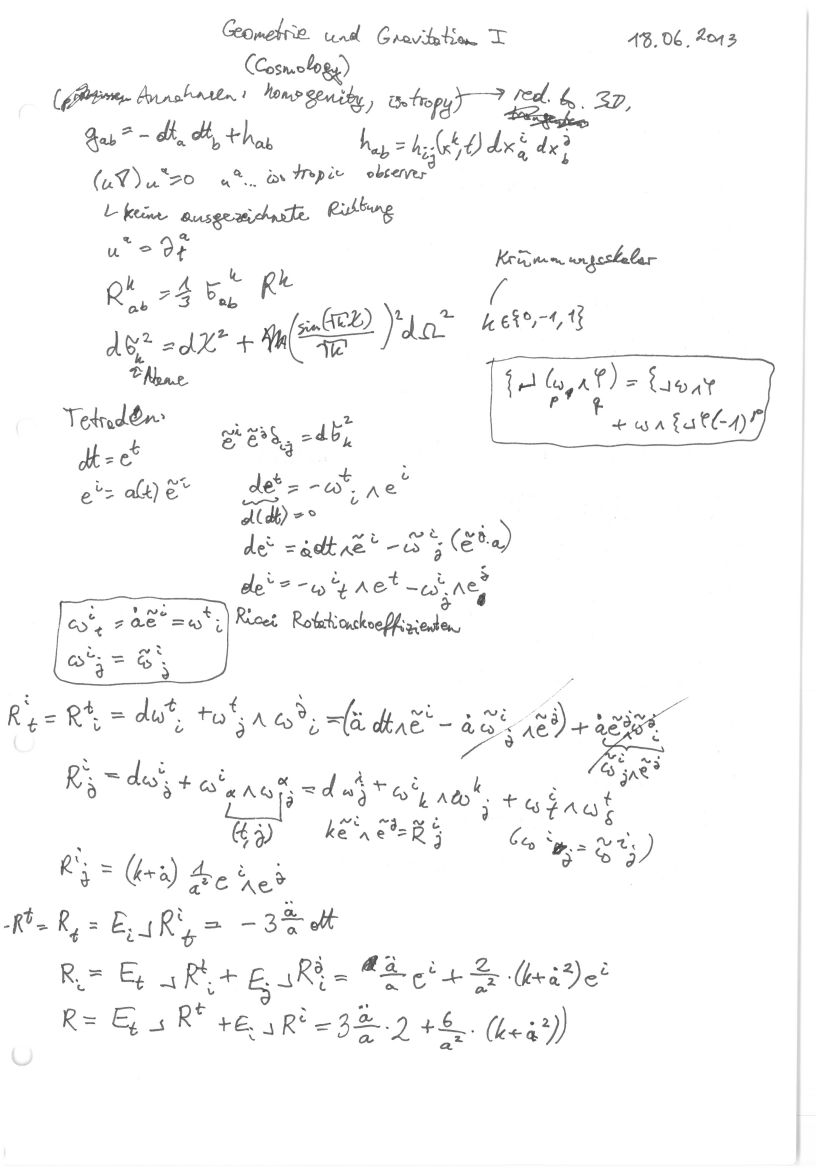 Geometrie und Gravitation I 18.06.2013
(Cosmology)
Annahmen: homogenity, isotropy) → red. to. 3D,
g_ab = - dt_a dt_b + h_ab h_ab = h_ij(x^k,t) dx^i_a dx^j_b
(u∇)u^a = 0 u^a... isotropic observer
↳ keine ausgezeichnete Richtung
u^a = ∂_t^a
Krümmungsskalar
R^k_ab = 1/3 σ_ab^k R^k
k ∈ {0,-1,1}
dσ_k^2 = dχ^2 + (sin(√k χ)/√k)^2 dΩ^2
↑ Name
ξ ⌟ (ω_p ∧ φ_q) = ξ⌟ω∧φ
+ ω ∧ ξ⌟φ(-1)^p
Tetraden:
dt = e^t ẽ^i ẽ^j δ_ij = dσ_k^2
e^i = a(t) ẽ^i de^t = -ω^t_i ∧ e^i
d(dt) = 0
de^i = ȧ dt∧ẽ^i - ω̃^i_j (ẽ^j·a)
de^i = -ω^i_t ∧ e^t - ω^i_j ∧ e^j
ω^i_t = ȧẽ^i = ω^t_i Ricci Rotationskoeffizienten
ω^i_j = ω̃^i_j
R^i_t = R^t_i = dω^t_i + ω^t_j ∧ ω^j_i = (ä dt∧ẽ^i - ȧ ω̃^i_j ∧ẽ^j) + ȧẽ^j ω̃^j_i
ω̃^i_j∧ẽ^j
R^i_j = dω^i_j + ω^i_α ∧ ω^α_j = dω^i_j + ω^i_k ∧ ω^k_j + ω^i_t ∧ ω^t_j
(t,j) kẽ^i ∧ ẽ^j = R̃^i_j (ω^i_j = ω̃^i_j)
R^i_j = (k+ȧ) 1/a² e^i ∧ e^j
-R^t = R_t = E_i ⌟ R^i_t = -3 ä/a dt
R_i = E_t ⌟ R^t_i + E_j ⌟ R^j_i = ä/a e^i + 2/a² · (k+ȧ²) e^i
R = E_t ⌟ R^t + E_i ⌟ R^i = 3 ä/a · 2 + 6/a² · (k+ȧ²))